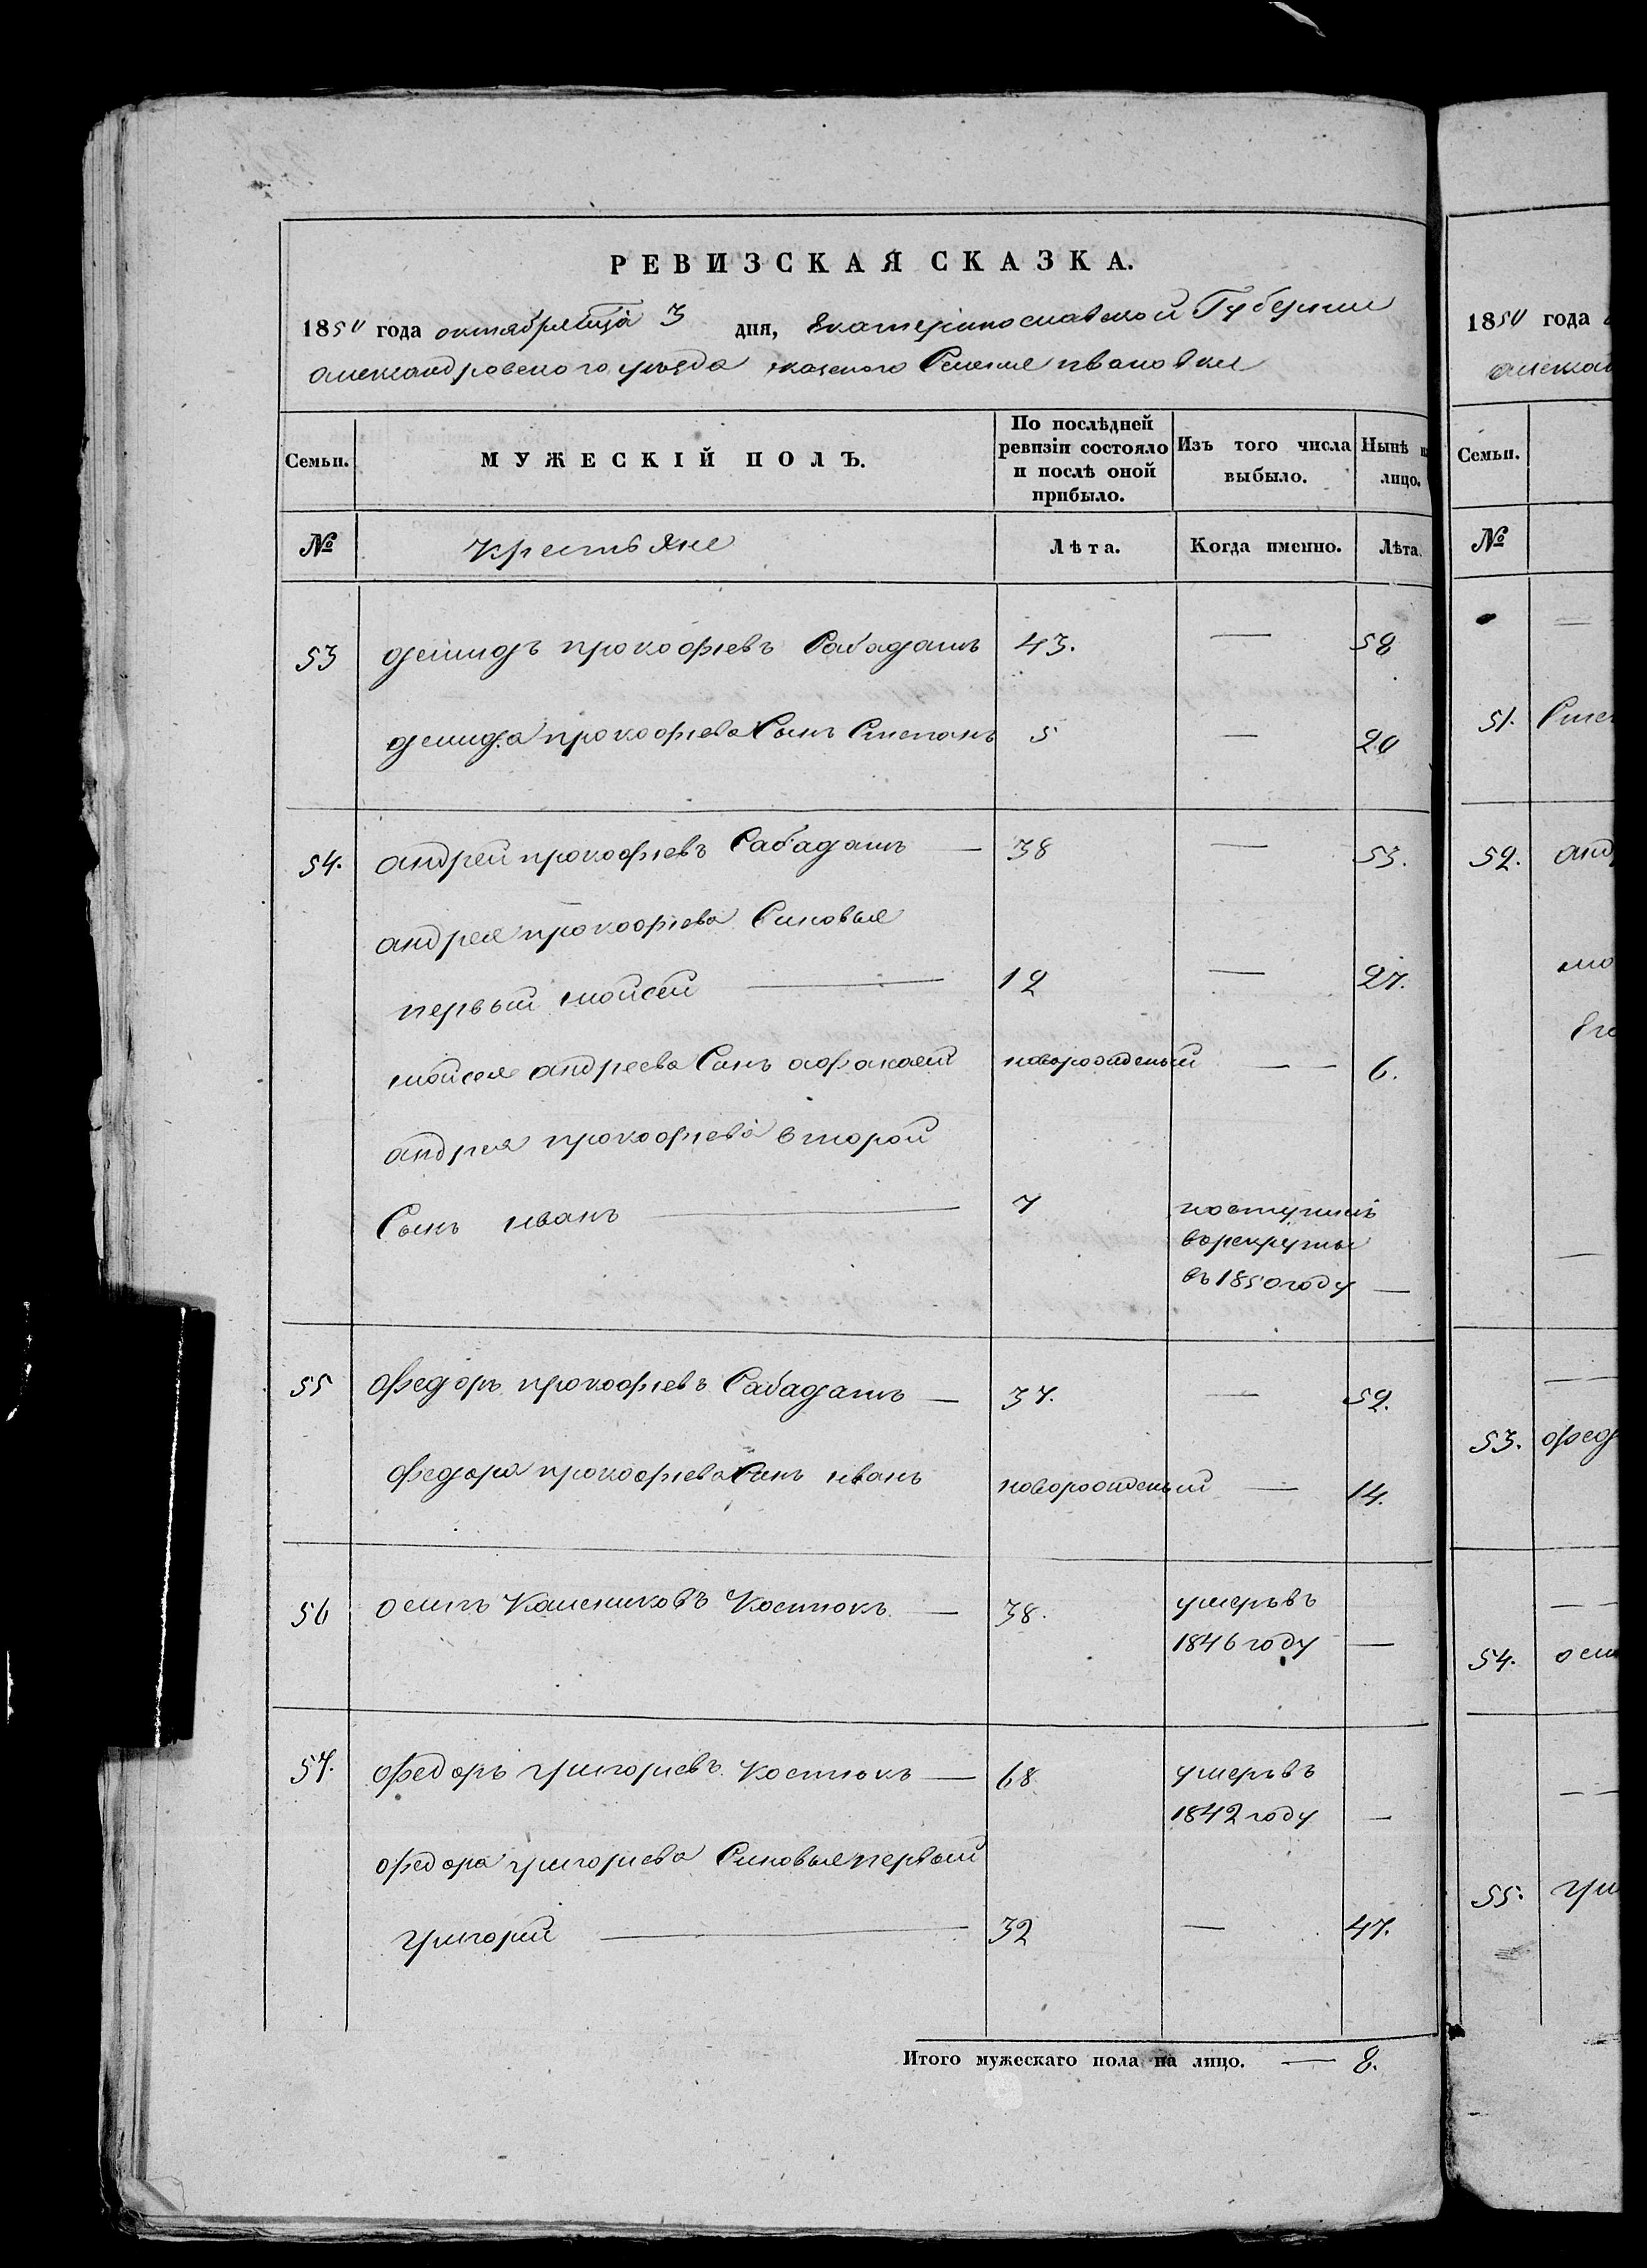 РЕВИЗСКАЯ СКАЗКА.
1850 года октября мца 3 дня, Екатеринославской Губернии
александровского уезда казеного Селения ивановки
Семьи. МУЖЕСКІЙ ПОЛЪ. По послѣдней ревизіи состояло и послѣ оной прибыло. Изъ того числа выбыло. Нынѣ н лицо.
№ Крестьяне Лѣта. Когда именно. Лѣта.
53 демидъ прокофиевъ Сабадашъ 43. — 58
демида прокофиева Сынъ Степанъ 5 — 20
54. андрей прокофиевъ Сабадашъ — 38 — 53.
андрея прокофиева Синовья
первый мойсей — 12 — 27.
мойсея андреева Синъ афанасий новорожденый — — 6.
андрея прокофиева второй
Сынъ иванъ — 7 поступилъ
врекруты
въ 1850 году —
55 федоръ прокофиевъ Сабадашъ — 37. — 52.
федора прокофиева Синъ иванъ новорожденый — 14.
56 осипъ Калениковъ Костюкъ — 38. умеръ въ
1846 году —
57. федоръ григориевъ костюкъ — 68 умеръ въ
1842 году —
федора григориева Синовья первый
григорий — 32 — 47.
Итого мужескаго пола на лицо. — 8.
1850 года
Семьи.
№
51.
52.
53.
54.
55.